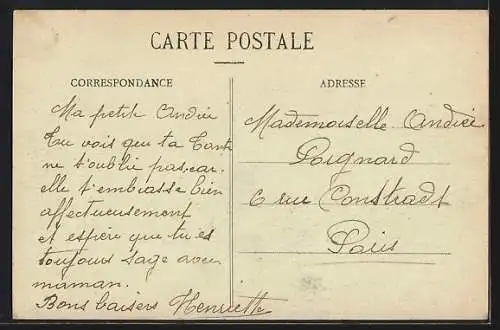 CARTE POSTALE
CORRESPONDANCE
ADRESSE
Ma petite Andrée
Tu vois que ta Tante
ne t'oublie pas, car
elle t'embrasse bien
affectueusement
et espère que tu es
toujours sage avec
maman.
Bons baisers Henriette
Mademoiselle Andrée
Poignard
6 rue
Paris